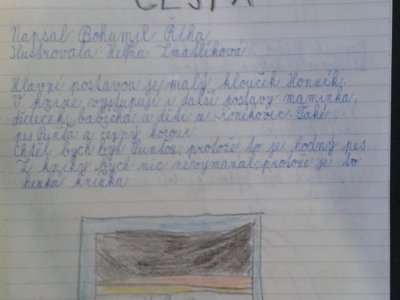 CESTA
Napsal Bohumil Říha
Ilustrovala Helena Zmatlíková
Hlavní postavou je malý klouček Honzík.
V knize vystupují i další postavy maminka,
dědeček, babička a děti z Koníkovic. Také
pes Punťa a černý kocour.
Chtěl bych být Punťou, protože to je hodný pes.
Z knihy bych nic nevymazal, protože je to
hezká knížka.